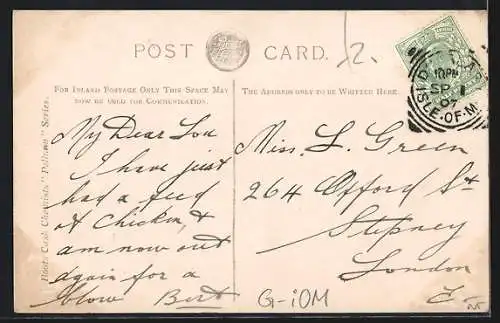 POST CARD.
2.
FOR INLAND POSTAGE ONLY THIS SPACE MAY
NOW BE USED FOR COMMUNICATION.
THE ADDRESS ONLY TO BE WRITTEN HERE.
Boots Cash Chemists "Pelham" Series.
My Dear Lou
I have just
had a feed
of Chicken, &
am now out
again for a
blow Bert
Miss. L. Green
264 Offord St
Stepney
London
E
10 PM
SP 1
07
ISLE·OF·M
G-IOM